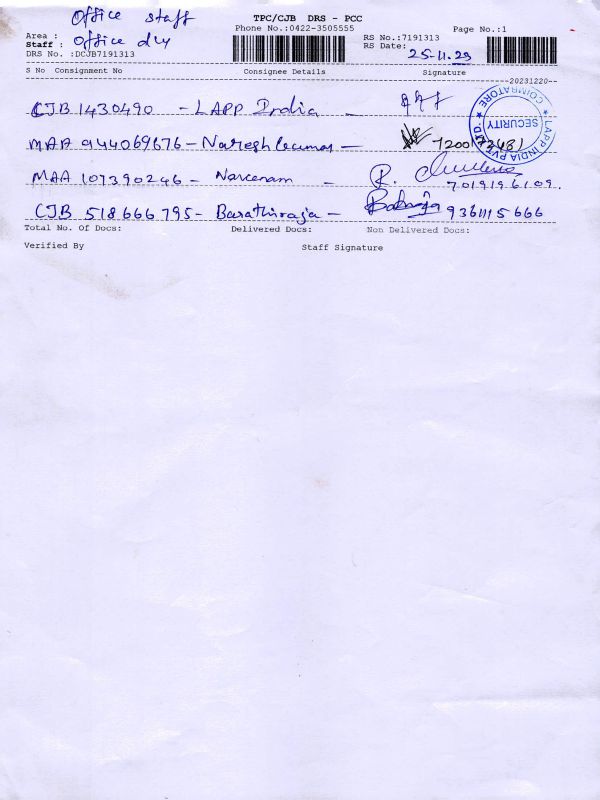 Office staff
TPC/CJB DRS - PCC
Phone No.:0422-3505555
Page No.:1
Area :
Staff : Office dly
RS No.:7191313
RS Date: 25-11-23
DRS No. :DCJB7191313
S No Consignment No Consignee Details Signature
--20231220--
CJB 1430490 - LAPP India -
MAA 944069676 - Nareshkumar -
MAA 107390246 - Narcenam - R. 7019196109.
CJB 518666795 - Barathiraja - 9361115666
LAPP INDIA PVT LTD. ★ COIMBATORE ★
SECURITY
Total No. Of Docs: Delivered Docs: Non Delivered Docs:
Verified By Staff Signature